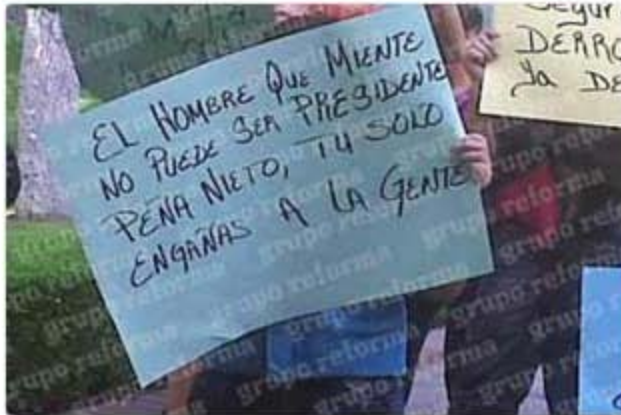 EL HOMBRE QUE MIENTE
NO PUEDE SER PRESIDENTE
PEÑA NIETO, TU SOLO
ENGAÑAS A LA GENTE
DERRO
Ya DE
grupo reforma